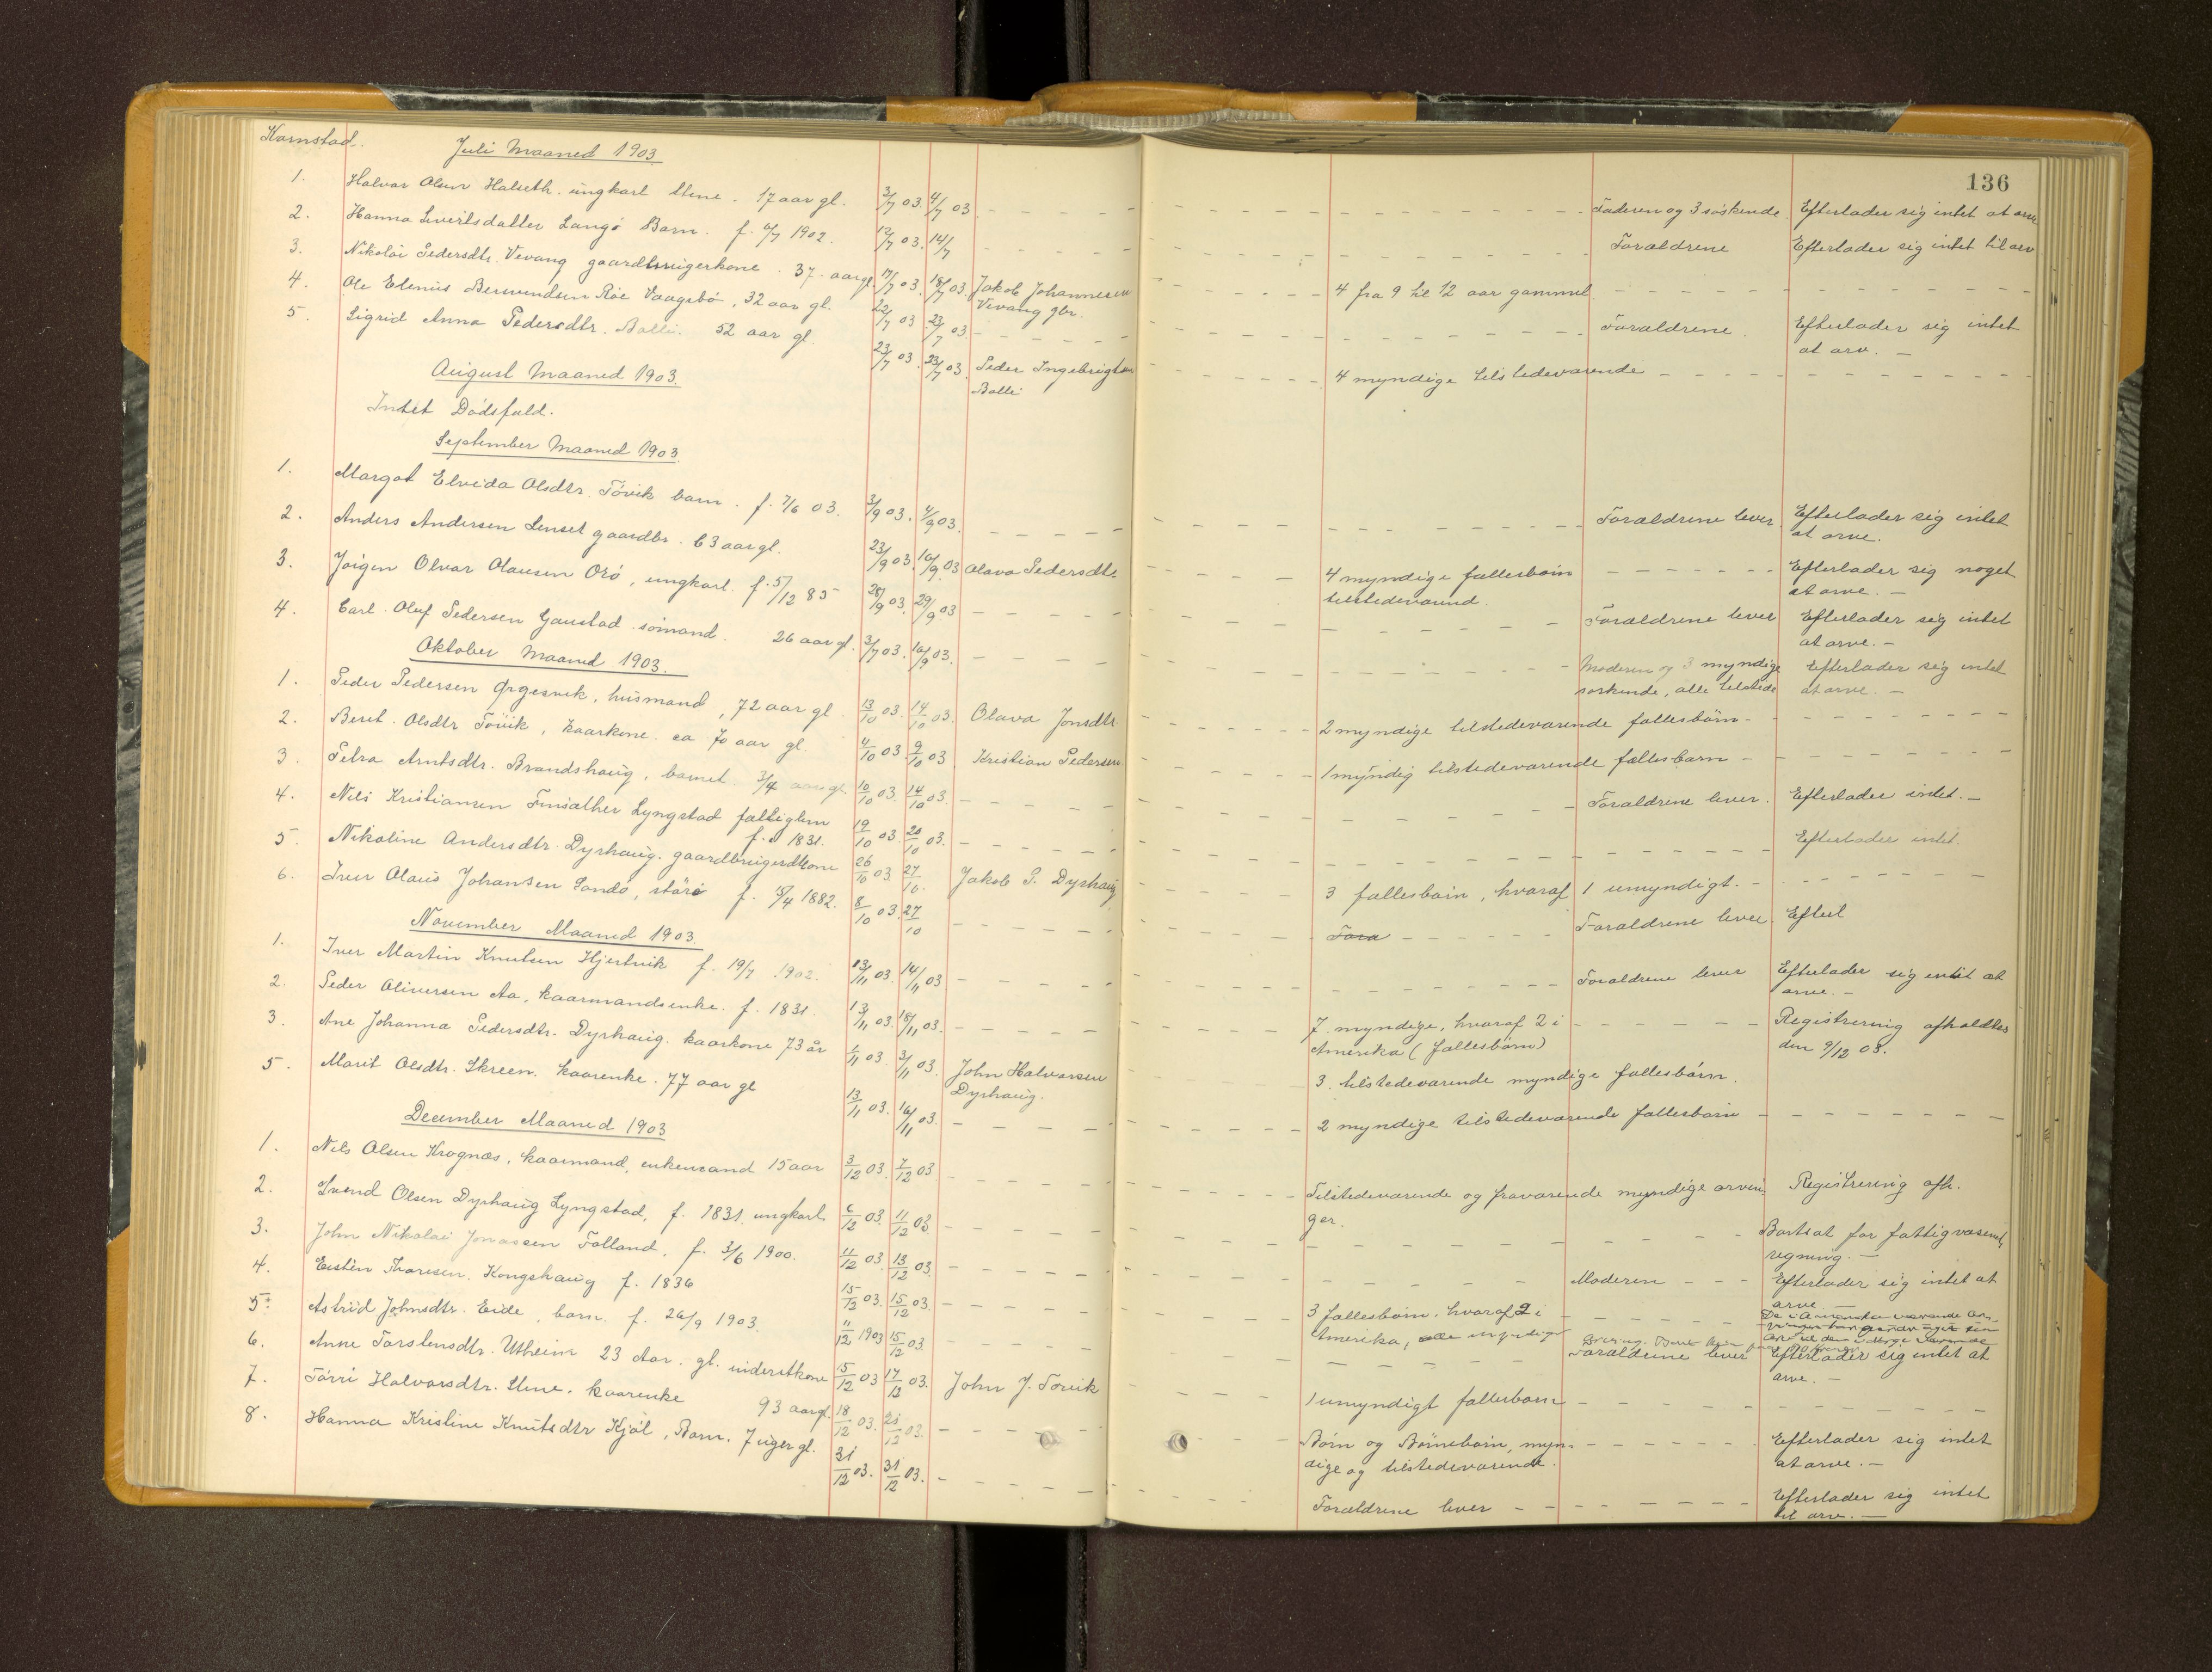 136
Kornstad.
Juli Maaned 1903
1. Halvar Olsen Halseth. ungkarl Stene. 17 aar gl. 3/7 03. 4/7 03 Faderen og 3 söskende. Efterlader sig intet at arve
2. Hanna Sivertsdatter Langö Barn. f. 6/7 1902. 12/7 03. 14/7 Forældrene Efterlader sig intet til arv
3. Nikolai Pedersdtr. Vevang gaardbrugerkone. 37. aar gl. 17/7 03. 18/7 03. Jakob Johannesen 4 fra 9 til 12 aar gammel
Vevang gbr.
4. Ole Elenius Bersvendsen Röe Vaagsbö, 32 aar gl. 22/7 03 23/7 03. Forældrene. Efterlader sig intet
at arv. —
5. Sigrid Anna Pedersdtr. Bolli. 52 aar gl. 23/7 03. 23/7 03. Peder Ingebrigtsen 4 myndige tilstedeværende
Bolli
August Maaned 1903.
Intet Dödsfald.
September Maaned 1903.
1. Margot Elvida Olsdtr. Tövik barn. f. 7/6 03. 3/9 03. 4/9 03. Forældrene lever Efterlader sig intet
at arve.
2. Anders Andersen Lenset gaardbr. 63 aar gl. 23/9 03. 16/9 03 Olava Pedersdtr. 4 myndige fællesbörn Efterlader sig noget
tilstedeværend. at arve. —
3. Jörgen Olvar Olausen Orö, ungkarl. f. 5/12 85 28/9 03. 29/9 03 Forældrene lever Efterlader sig intet
at arve. —
4. Carl Oluf Pedersen Gaustad. sömand. 26 aar gl. 3/7 03. 16/9 03. Moderen og 3 myndige Efterlader sig intet
söskende, alle tilstede at arve. —
Oktober Maaned 1903.
1. Peder Pedersen Ørgesvik, husmand, 72 aar gl 13/10 03. 14/10 03. Olava Jonsdtr. 2 myndige tilstedeværende fællesbörn
2. Beret Olsdtr Tövik, kaarkone. ca 70 aar gl. 4/10 03 9/10 03 Kristian Pedersen 1 myndig tilstedeværende fællesbarn
3. Petra Arntsdtr. Brandshaug, barnet 3/4 aar gl. 10/10 03. 14/10 03. Forældrene lever. Efterlader intet. —
4. Nils Kristiansen Lyngstad fattiglem 19/10 03. 20/10 03. Efterlader intet.
f. 1831.
5. Nikoline Andersdtr. Dyrhaug. gaardbrugerkone 26/10 03. 27/10. Jakob P. Dyrhaug 3 fællesbörn, hvoraf 1 umyndigt.
6. Iver Olaus Johansen Sandö, f. 15/4 1882. 8/10 03. 27/10 Fora Forældrene lever. Efterl
November Maaned 1903.
1. Iver Martin Knutsen Hjertvik f. 19/7 1902. 13/11 03. 14/11 03 Forældrene lever Efterlader sig intet at
arve. —
2. Peder Oliversen Aa, kaarmandsenke. f. 1831. 13/11 03. 18/11 03. 7 myndige, hvoraf 2 i Registrering afholdtes
Amerika (fællesbörn) den 9/12 03.
3. Ane Johanna Pedersdtr. Dyrhaug. kaarkone 73 år 1/11 03. 3/11 03. John Halvorsen 3 tilstedeværende myndige fællesbörn.
Dyrhaug.
5. Marit Olsdtr. Skreen. kaarenke. 77 aar gl 13/11 03. 16/11 03. 2 myndige tilstedeværende fællesbörn
December Maaned 1903
1. Nils Olsen Krognæs, kaarmand, enkemand 75 aar 3/12 03. 7/12 03 Tilstedeværende og fraværende myndige arvin Registrering afh.
ger.
2. Svend Olsen Dyrhaug Lyngstad, f. 1831 ungkarl. 6/12 03. 11/12 03. Bortsat for fattigvæsenets
regning. —
3. John Nikolai Jonassen Folland. f. 3/6 1900. 11/12 03. 13/12 03. Moderen Efterlader sig intet at
arve —
4. Eistèn Thoresen. Kongshaug f. 1836 15/12 03. 15/12 03. 3 fællesbörn, hvoraf 2 i De i Amerika værende ar
Amerika, alle myndige
5. Astrid Johnsdtr. Eide, barn. f. 26/9 1903. 11/12 1903 15/12 03. Forældrene lever Efterlader sig intet at
arve. —
6. Anne Torstensdtr. Utheim 23 Aar. gl. inderstkone 15/12 03 17/12 03. John J. Tovik 1 umyndigt fællesbarn
7. Törri Halvorsdtr. Stene. kaarenke 93 aar gl. 18/12 03. 21/12 03. Börn og Börnebörn, myn- Efterlader sig intet
dige og tilstedeværende. at arve. —
8. Hanna Kristine Knutsdtr Kjöl, Barn. 7 uger gl. 31/12 03. 31/12 03. Forældrene lever Efterlader sig intet
til arv. —